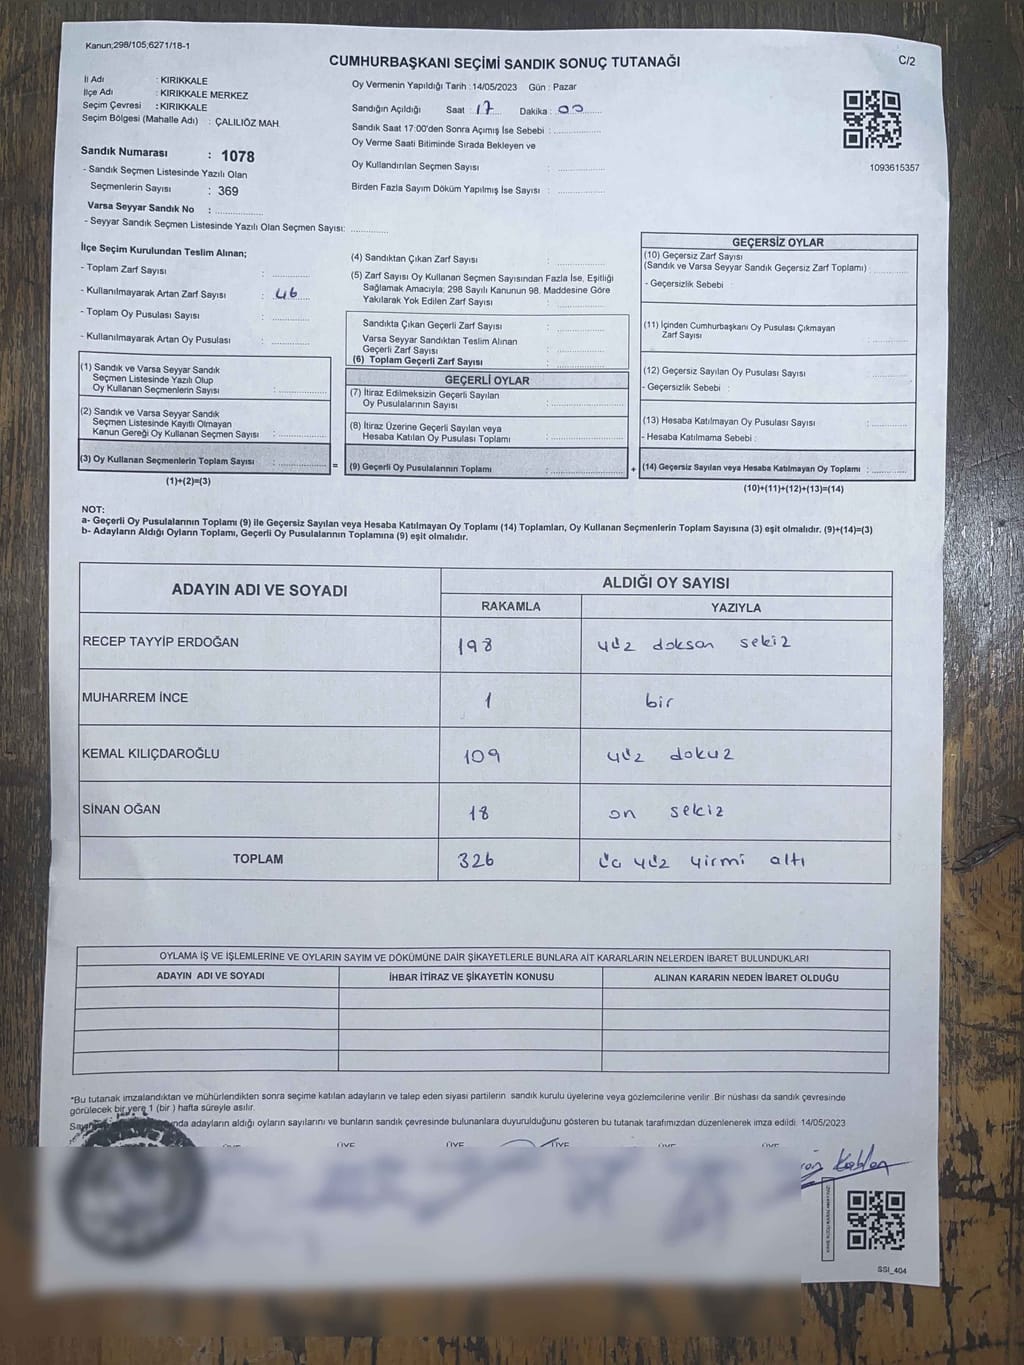 Kanun;298/105;6271/18-1
CUMHURBAŞKANI SEÇİMİ SANDIK SONUÇ TUTANAĞI
C/2
İl Adı : KIRIKKALE
İlçe Adı : KIRIKKALE MERKEZ
Seçim Çevresi : KIRIKKALE
Seçim Bölgesi (Mahalle Adı) : ÇALILIÖZ MAH.
Sandık Numarası : 1078
- Sandık Seçmen Listesinde Yazılı Olan
Seçmenlerin Sayısı : 369
Varsa Seyyar Sandık No :
- Seyyar Sandık Seçmen Listesinde Yazılı Olan Seçmen Sayısı:
Oy Vermenin Yapıldığı Tarih : 14/05/2023 Gün : Pazar
Sandığın Açıldığı Saat : 17 Dakika : 00
Sandık Saat 17:00'den Sonra Açımış İse Sebebi :
Oy Verme Saati Bitiminde Sırada Bekleyen ve
Oy Kullandırılan Seçmen Sayısı :
Birden Fazla Sayım Döküm Yapılmış İse Sayısı :
1093615357
İlçe Seçim Kurulundan Teslim Alınan;
- Toplam Zarf Sayısı :
- Kullanılmayarak Artan Zarf Sayısı : 46
- Toplam Oy Pusulası Sayısı :
- Kullanılmayarak Artan Oy Pusulası :
(1) Sandık ve Varsa Seyyar Sandık
Seçmen Listesinde Yazılı Olup
Oy Kullanan Seçmenlerin Sayısı :
(2) Sandık ve Varsa Seyyar Sandık
Seçmen Listesinde Kayıtlı Olmayan
Kanun Gereği Oy Kullanan Seçmen Sayısı :
(3) Oy Kullanan Seçmenlerin Toplam Sayısı :
(1)+(2)=(3)
=
(4) Sandıktan Çıkan Zarf Sayısı :
(5) Zarf Sayısı Oy Kullanan Seçmen Sayısından Fazla İse, Eşitliği
Sağlamak Amacıyla; 298 Sayılı Kanunun 98. Maddesine Göre
Yakılarak Yok Edilen Zarf Sayısı :
Sandıkta Çıkan Geçerli Zarf Sayısı :
Varsa Seyyar Sandıktan Teslim Alınan
Geçerli Zarf Sayısı :
(6) Toplam Geçerli Zarf Sayısı :
GEÇERLİ OYLAR
(7) İtiraz Edilmeksizin Geçerli Sayılan
Oy Pusulalarının Sayısı :
(8) İtiraz Üzerine Geçerli Sayılan veya
Hesaba Katılan Oy Pusulası Toplamı :
(9) Geçerli Oy Pusulalarının Toplamı :
+
GEÇERSİZ OYLAR
(10) Geçersiz Zarf Sayısı
(Sandık ve Varsa Seyyar Sandık Geçersiz Zarf Toplamı) :
- Geçersizlik Sebebi :
(11) İçinden Cumhurbaşkanı Oy Pusulası Çıkmayan
Zarf Sayısı :
(12) Geçersiz Sayılan Oy Pusulası Sayısı
- Geçersizlik Sebebi :
(13) Hesaba Katılmayan Oy Pusulası Sayısı :
- Hesaba Katılmama Sebebi :
(14) Geçersiz Sayılan veya Hesaba Katılmayan Oy Toplamı :
(10)+(11)+(12)+(13)=(14)
NOT:
a- Geçerli Oy Pusulalarının Toplamı (9) ile Geçersiz Sayılan veya Hesaba Katılmayan Oy Toplamı (14) Toplamları, Oy Kullanan Seçmenlerin Toplam Sayısına (3) eşit olmalıdır. (9)+(14)=(3)
b- Adayların Aldığı Oyların Toplamı, Geçerli Oy Pusulalarının Toplamına (9) eşit olmalıdır.
ADAYIN ADI VE SOYADI ALDIĞI OY SAYISI
RAKAMLA YAZIYLA
RECEP TAYYİP ERDOĞAN 198 yüz doksan sekiz
MUHARREM İNCE 1 bir
KEMAL KILIÇDAROĞLU 109 yüz dokuz
SİNAN OĞAN 18 on sekiz
TOPLAM 326 üç yüz yirmi altı
OYLAMA İŞ VE İŞLEMLERİNE VE OYLARIN SAYIM VE DÖKÜMÜNE DAİR ŞİKAYETLERLE BUNLARA AİT KARARLARIN NELERDEN İBARET BULUNDUKLARI
ADAYIN ADI VE SOYADI İHBAR İTİRAZ VE ŞİKAYETİN KONUSU ALINAN KARARIN NEDEN İBARET OLDUĞU
*Bu tutanak imzalandıktan ve mühürlendikten sonra seçime katılan adayların ve talep eden siyasi partilerin sandık kurulu üyelerine veya gözlemcilerine verilir. Bir nüshası da sandık çevresinde
görülecek bir yere 1 (bir ) hafta süreyle asılır.
adayların aldığı oyların sayılarını ve bunların sandık çevresinde bulunanlara duyurulduğunu gösteren bu tutanak tarafımızdan düzenlenerek imza edildi. 14/05/2023
ÜYE ÜYE ÜYE
SSI_404